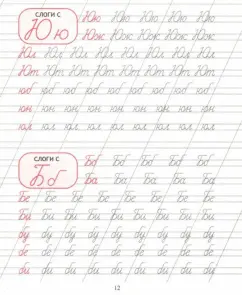 СЛОГИ С
Ю ю
Юю Юю Юю Юю Юю
Юж Юж Юж Юж Юж
Юл Юл Юл Юл Юл Юл Юл
Ют Ют Ют Ют Ют Ют Ют
юб юб юб юб юб юб юб юб
юн юн юн юн юн юн юн юн
юл юл юл юл юл юл юл юл
СЛОГИ С
Б б
Бб Бб Бб Бб
Ба Ба Ба Ба
Бе Бе Бе Бе Бе Бе Бе Бе
Би Би Би Би Би Би Би Би
бу бу бу бу бу бу бу бу
бе бе бе бе бе бе бе бе
би би би би би би би би
12